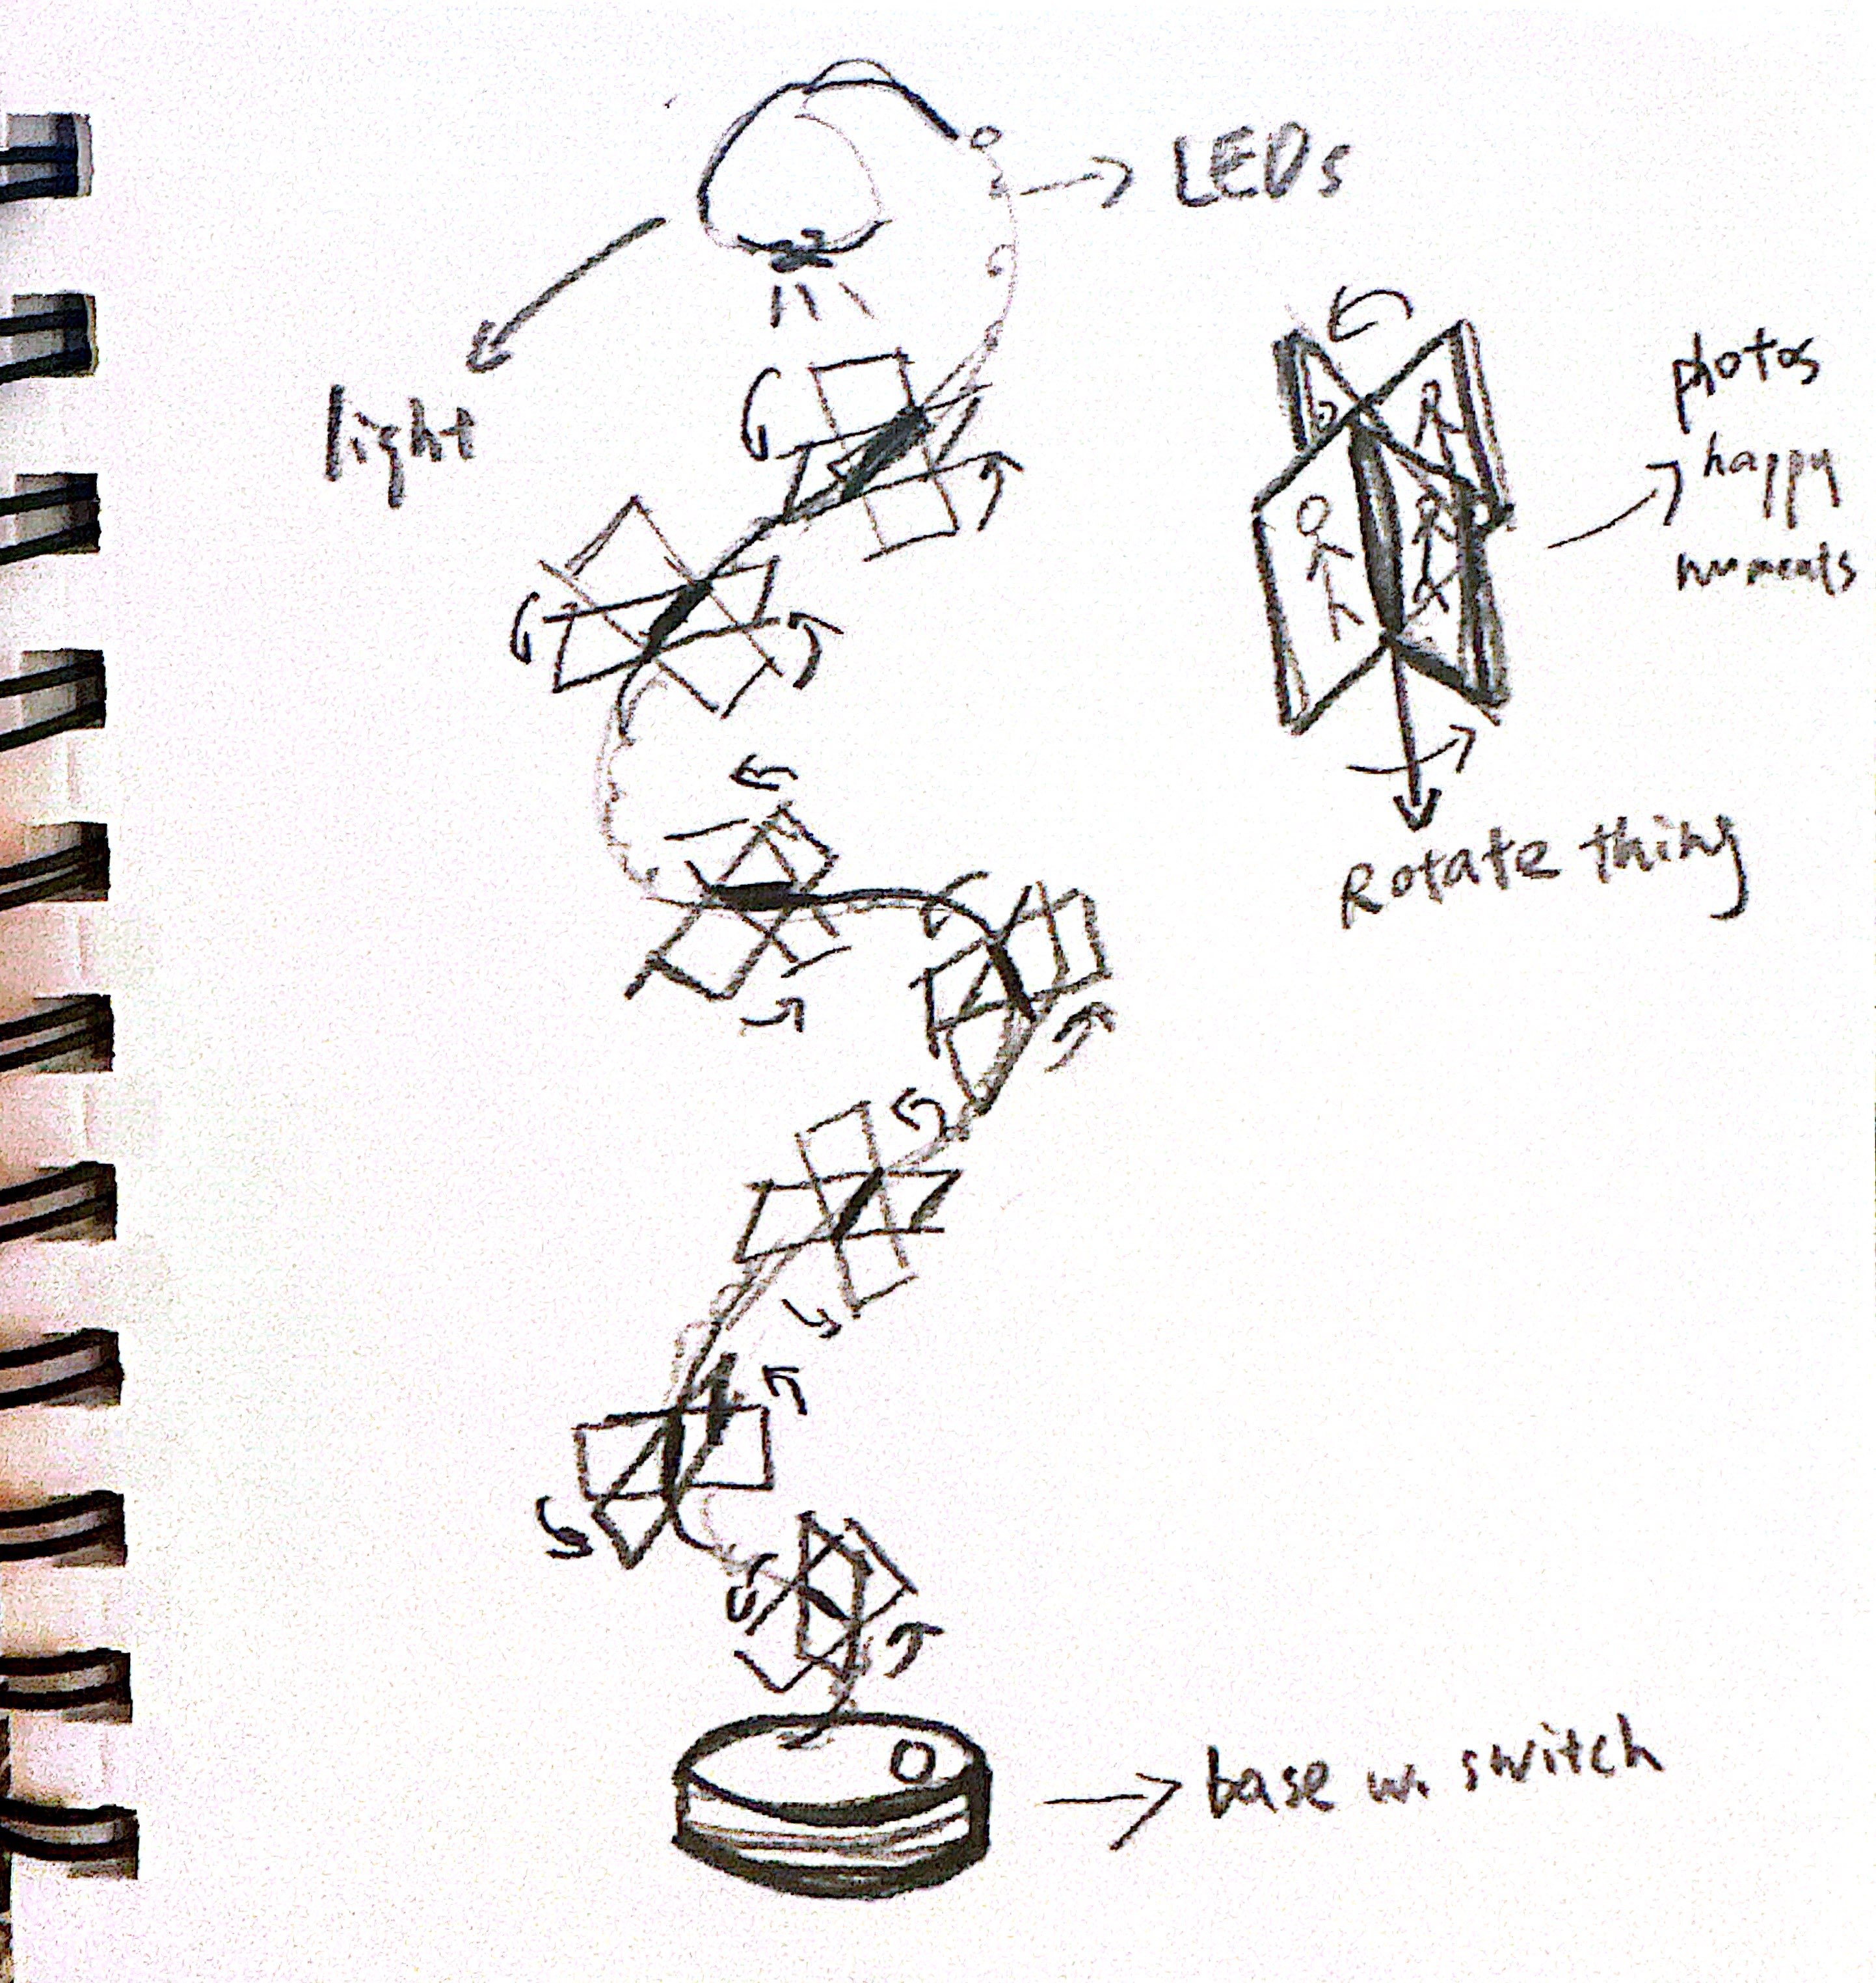 LEDs
light
photos
happy
moments
Rotate thing
base w. switch